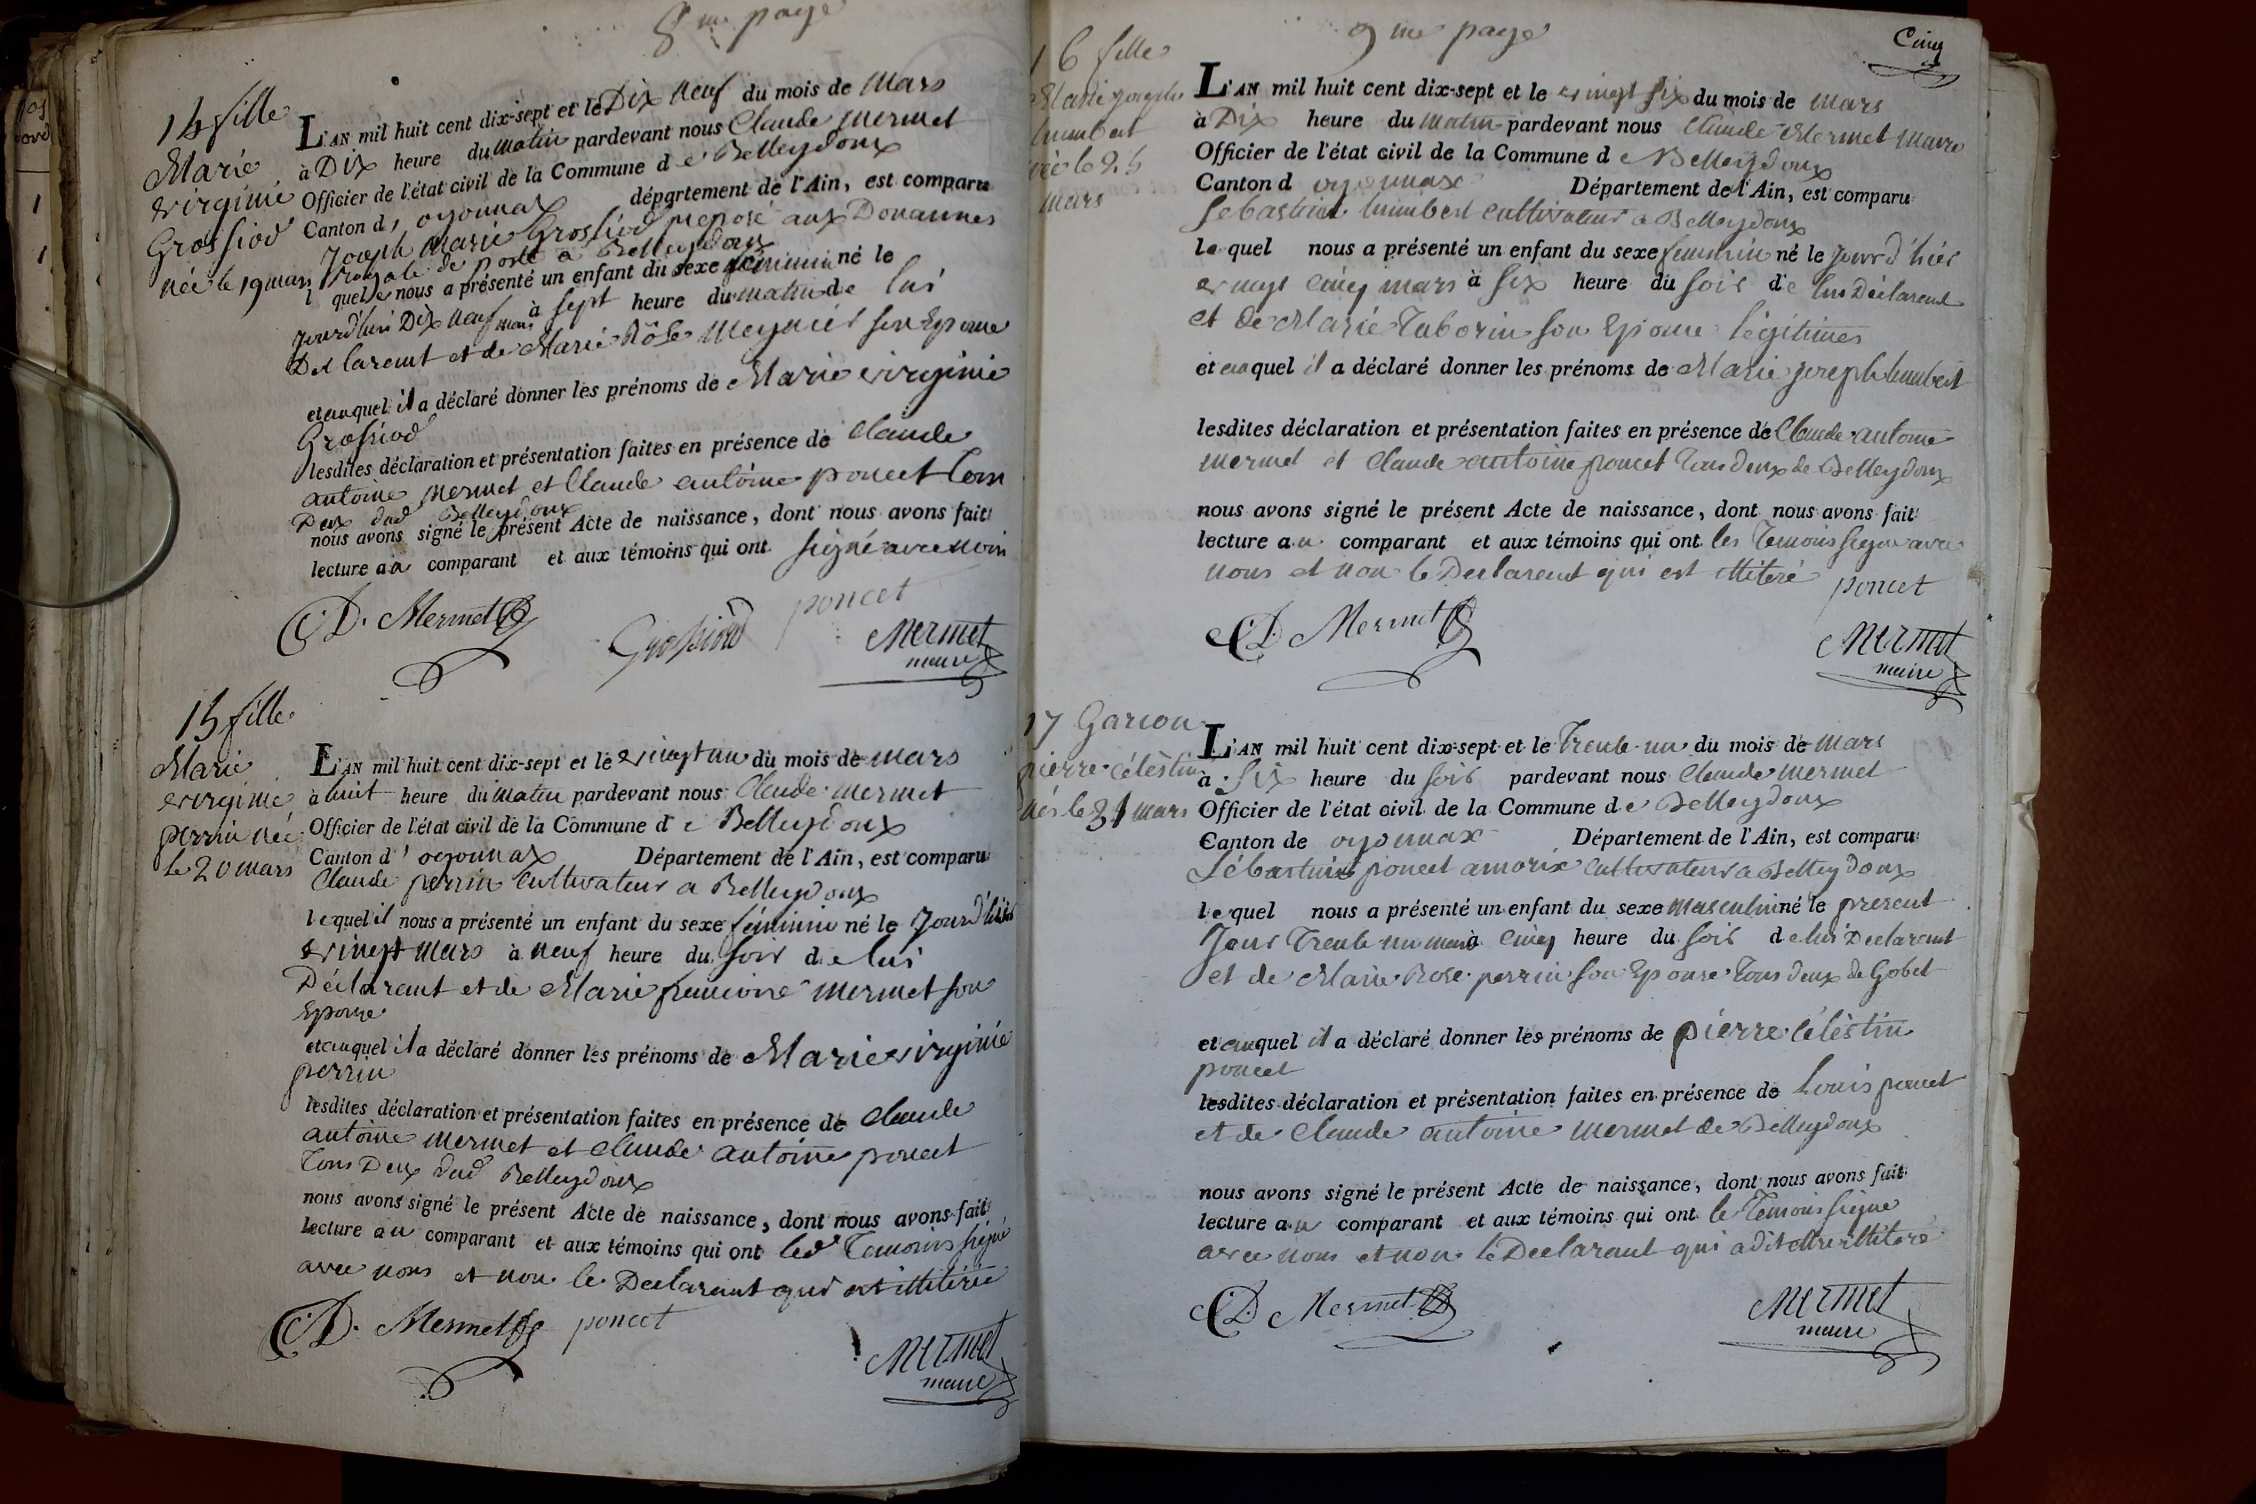 8me page
14 fille
Marie
virginie
Grossiod
née le 19 mars
L'AN mil huit cent dix-sept et le Dix neuf du mois de mars
à Dix heure du matin pardevant nous Claude mermet
Officier de l'état civil de la Commune de Belleydoux
Canton d, oyonnax département de l'Ain, est comparu
Joseph Marie Grossiod preposé aux Douannes
royale de poste a Belleydoux
l quel nous a présenté un enfant du sexe feminin né le
jourd'hui Dix neuf mars à sept heure du matin de lui
Declarant et de Marie Rôse meynier son Epouse
et auquel il a déclaré donner les prénoms de Marie virginie
Grossiod
lesdites déclaration et présentation faites en présence de Claude
antoine mermet et Claude antoine poncet tous
Deux dud Belleydoux
nous avons signé le présent Acte de naissance, dont nous avons fait
lecture au comparant et aux témoins qui ont signé avec nous
CD. Mermet
Grossiod
poncet
Mermet
maire
15 fille
Marie
virginie
perrin née
le 20 mars
L'AN mil huit cent dix-sept et le vingt un du mois de mars
à huit heure du matin pardevant nous Claude mermet
Officier de l'état civil de la Commune de Belleydoux
Canton d' oyonnax Département de l'Ain, est comparu
Claude perrin cultivateur a Belleydoux
lequel il nous a présenté un enfant du sexe féminin né le jour d'hier
vingt mars à neuf heure du soir de lui
Déclarant et de Marie francoise mermet son
Epouse
et auquel il a déclaré donner les prénoms de Marie virginie
perrin
lesdites déclaration et présentation faites en présence de Claude
antoine mermet et claude antoine poncet
Tous Deux dud Belleydoux
nous avons signé le présent Acte de naissance, dont nous avons fait
lecture au comparant et aux témoins qui ont led Temoins signé
avec nous et non le Declarant qui est illitéré
CD. Mermet
poncet
Mermet
maire
9me page
Cinq
16 fille
Marie joseph
humbert
née le 25
mars
L'AN mil huit cent dix-sept et le vingt six du mois de mars
à Dix heure du matin pardevant nous Claude Mermet maire
Officier de l'état civil de la Commune de Belleydoux
Canton d oyonnax Département de l'Ain, est comparu
Sebastien humbert cultivateur a Belleydoux
lequel nous a présenté un enfant du sexe feminin né le jour d'hier
vingt cinq mars à six heure du soir de lui Déclarant
et de Marie Taborin son Epouse légitimes
et auquel il a déclaré donner les prénoms de Marie joseph humbert
lesdites déclaration et présentation faites en présence de Claude antoine
mermet et Claude antoine poncet Tous deux de Belleydoux
nous avons signé le présent Acte de naissance, dont nous avons fait
lecture au comparant et aux témoins qui ont les Temoins signé avec
nous et non le Declarant qui est illiteré
poncet
CD Mermet
Mermet
maire
17 Garcon
pierre célèstin
nés le 31 mars
L'AN mil huit cent dix-sept et le Trente un du mois de mars
à six heure du soir pardevant nous Claude mermet
Officier de l'état civil de la Commune de Belleydoux
Canton de oyonnax Département de l'Ain, est comparu
Sébastien poncet amorix cultivateur a Belleydoux
lequel nous a présenté un enfant du sexe masculin né le present
Jour Trente un mars à cinq heure du soir de lui Declarant
et de Marie Rose perrin son Epouse Tous deux de Gobet
et auquel il a déclaré donner les prénoms de pierre célèstin
poncet
lesdites déclaration et présentation faites en présence de Louis poncet
et de Claude antoine mermet de Belleydoux
nous avons signé le présent Acte de naissance, dont nous avons fait
lecture au comparant et aux témoins qui ont le Temoins signé
avec nous et non le Declarant qui a dit être illiteré
CD Mermet
Mermet
maire